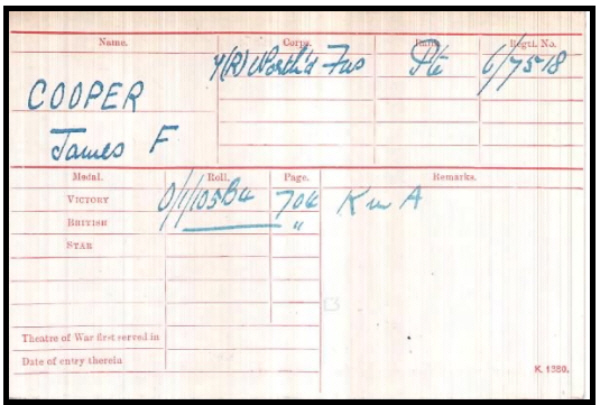 Name. Corps. Rank. Regtl. No.
COOPER 4(R) North'd Fus Pte 6/7518
James F
Medal. Roll. Page. Remarks.
VICTORY 0/1/105B4 704 K in A
BRITISH "
STAR
Theatre of War first served in
Date of entry therein
K. 1380.